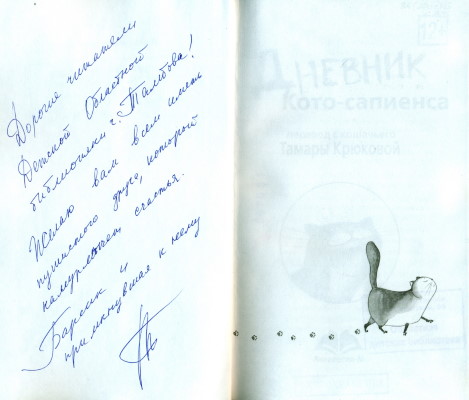 Дорогие читатели
Детской Областной
библиотеки г. Тамбова!
Желаю вам всем иметь
пушистого друга, который
намурлыкает счастья.
Барсик и
примкнувшая к нему
Дневник
Кото-сапиенса
Тамары Крюковой